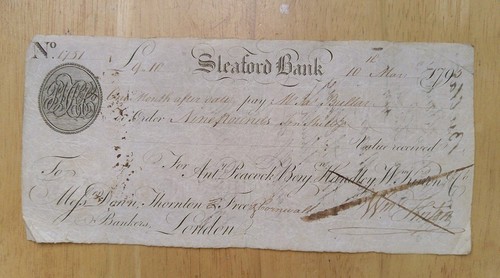 No 1731 £9.10 Sleaford Bank 10 Mar 1795
Month after date pay Mr Jas Buller
or Order Nine Pounds Ten Shillgs
Value received
For Anty Peacock Benj. Handley Wm Kirton & Co
To
Messrs Down, Thornton & Free
Bankers, London Wm Kirton